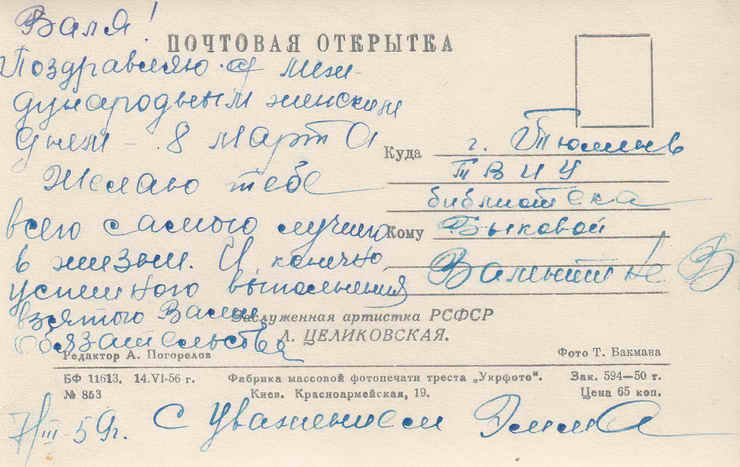 Валя!
ПОЧТОВАЯ ОТКРЫТКА
Поздравляю с меж-
дународным женским
днем - 8 марта
Желаю тебе
всего самого лучшего
в жизни. И конечно
успешного выполнения
взятого Вами
обязательства
Куда г. Тюмень
ТВИУ
библиотека
Кому Быковой
Валентине В
Заслуженная артистка РСФСР
Л. ЦЕЛИКОВСКАЯ.
Редактор А. Погорелов
Фото Т. Бакмана
БФ 11613. 14.VI-56 г. Фабрика массовой фотопечати треста „Укрфото". Зак. 594—50 т.
№ 853 Киев. Красноармейская, 19. Цена 65 коп.
7/III-59г. С уважением Эмма